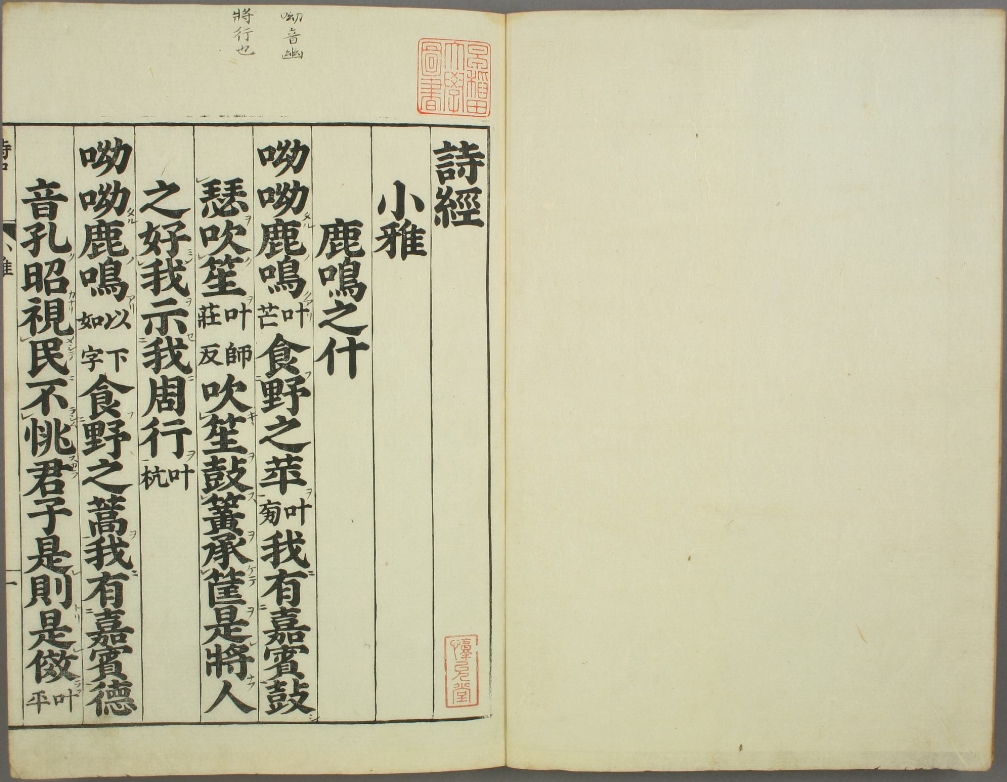 呦音幽
將行也
早稲田
大學
圖書
詩經
小雅
鹿鳴之什
呦呦鹿鳴叶芒食野之苹叶旁我有嘉賓鼓
瑟吹笙叶師莊反吹笙鼓簧承筐是將人
之好我示我周行叶杭
呦呦鹿鳴以下如字食野之蒿我有嘉賓德
音孔昭視民不恌君子是則是傚叶平